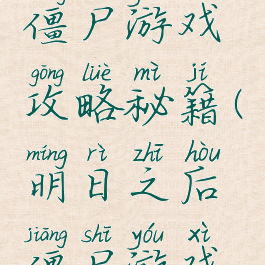 僵尸游戏
gōng lüè mì jí
攻略秘籍(
míng rì zhī hòu
明日之后
jiāng shī yóu xì
僵尸游戏